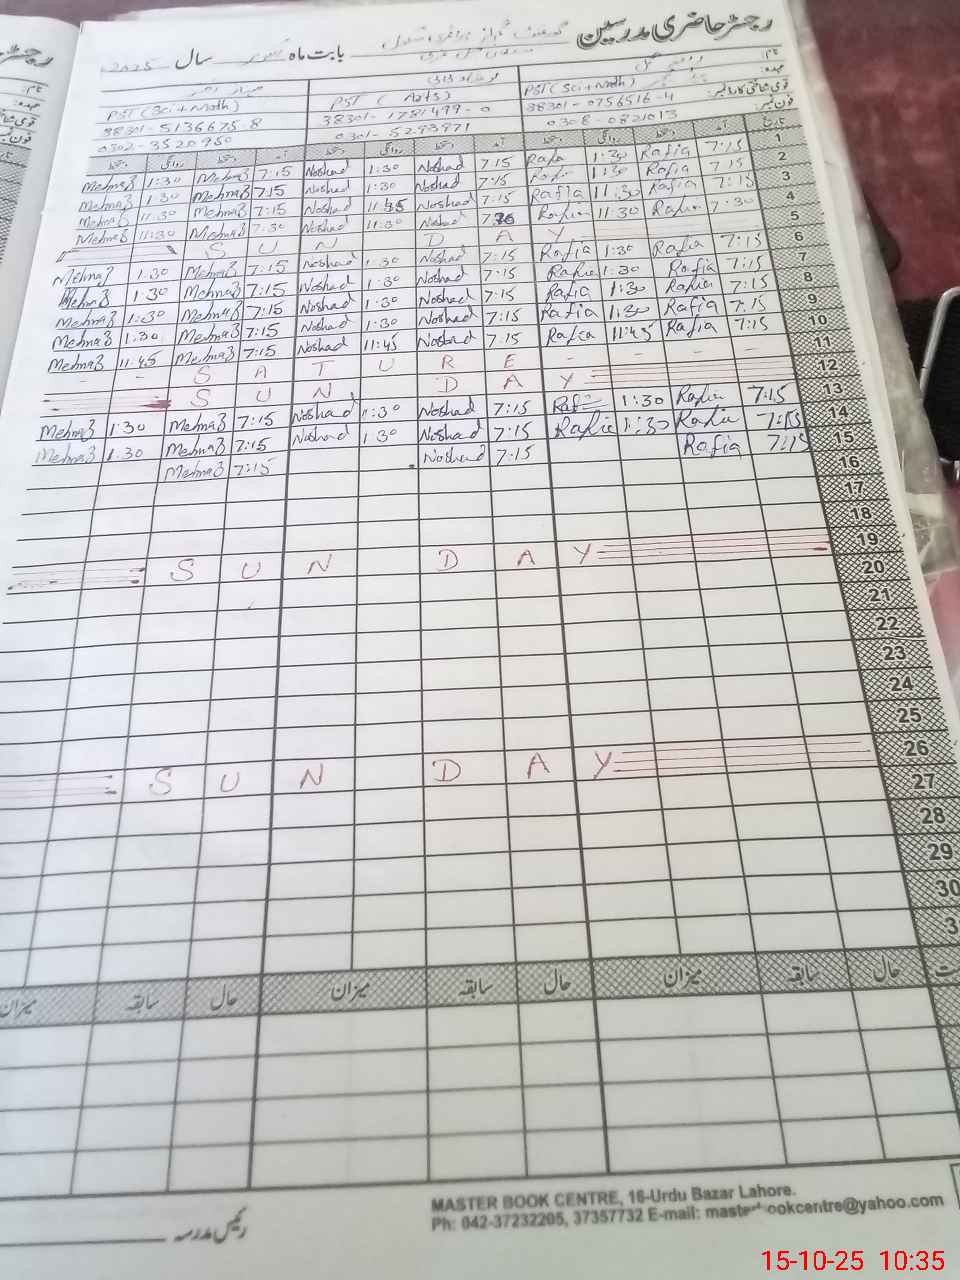 رجسٹر حاضری مدرسین
بابت ماہ
سال 2025
نام:
عہدہ: PST (Sci + Math) PST ( Arts) PST (Sci + Math)
قومی شناختی کارڈ نمبر: 38301-0756516-4 38301-1781499-0 38301-5136675-8
فون نمبر: 0308-0821013 0301-5293971 0302-3520950
تاریخ آمد دستخط روانگی دستخط آمد دستخط روانگی دستخط آمد دستخط روانگی دستخط
Mehnaz 1:30 Mehnaz 7:15 Noshad 1:30 Noshad 7:15 Rafia 1:30 Rafia 7:15 1
Mehnaz 1:30 Mehnaz 7:15 Noshad 1:30 Noshad 7:15 Rafia 1:30 Rafia 7:15 2
Mehnaz 11:30 Mehnaz 7:15 Noshad 11:45 Noshad 7:15 Rafia 11:30 Rafia 7:15 3
Mehnaz 11:30 Mehnaz 7:30 Noshad 11:30 Noshad Rafia 11:30 Rafia 7:30 4
S U N D A Y 5
Mehnaz 1:30 Mehnaz 7:15 Noshad 1:30 Noshad 7:15 Rafia 1:30 Rafia 7:15 6
Mehnaz 1:30 Mehnaz 7:15 Noshad 1:30 Noshad 7:15 Rafia 1:30 Rafia 7:15 7
Mehnaz 1:30 Mehnaz 7:15 Noshad 1:30 Noshad 7:15 Rafia 1:30 Rafia 7:15 8
Mehnaz 1:30 Mehnaz 7:15 Noshad 1:30 Noshad 7:15 Rafia 1:30 Rafia 7:15 9
Mehnaz 11:45 Mehnaz 7:15 Noshad 11:45 Noshad 7:15 Rafia 11:45 Rafia 7:15 10
- - S A T U R E - - - - 11
S U N D A Y 12
Mehnaz 1:30 Mehnaz 7:15 Noshad 1:30 Noshad 7:15 Rafia 1:30 Rafia 7:15 13
Mehnaz 1:30 Mehnaz 7:15 Noshad 1:30 Noshad 7:15 Rafia 1:30 Rafia 7:15 14
Mehnaz 7:15 Noshad 7:15 Rafia 7:15 15
16
17
18
S U N D A Y 19
20
21
22
23
24
25
S U N D A Y 26
27
28
29
30
3
حال سابقہ میزان حال سابقہ میزان حال سابقہ میزان
رئیس مدرسہ
MASTER BOOK CENTRE, 16-Urdu Bazar Lahore.
Ph: 042-37232205, 37357732 E-mail: masterbookcentre@yahoo.com
15-10-25 10:35